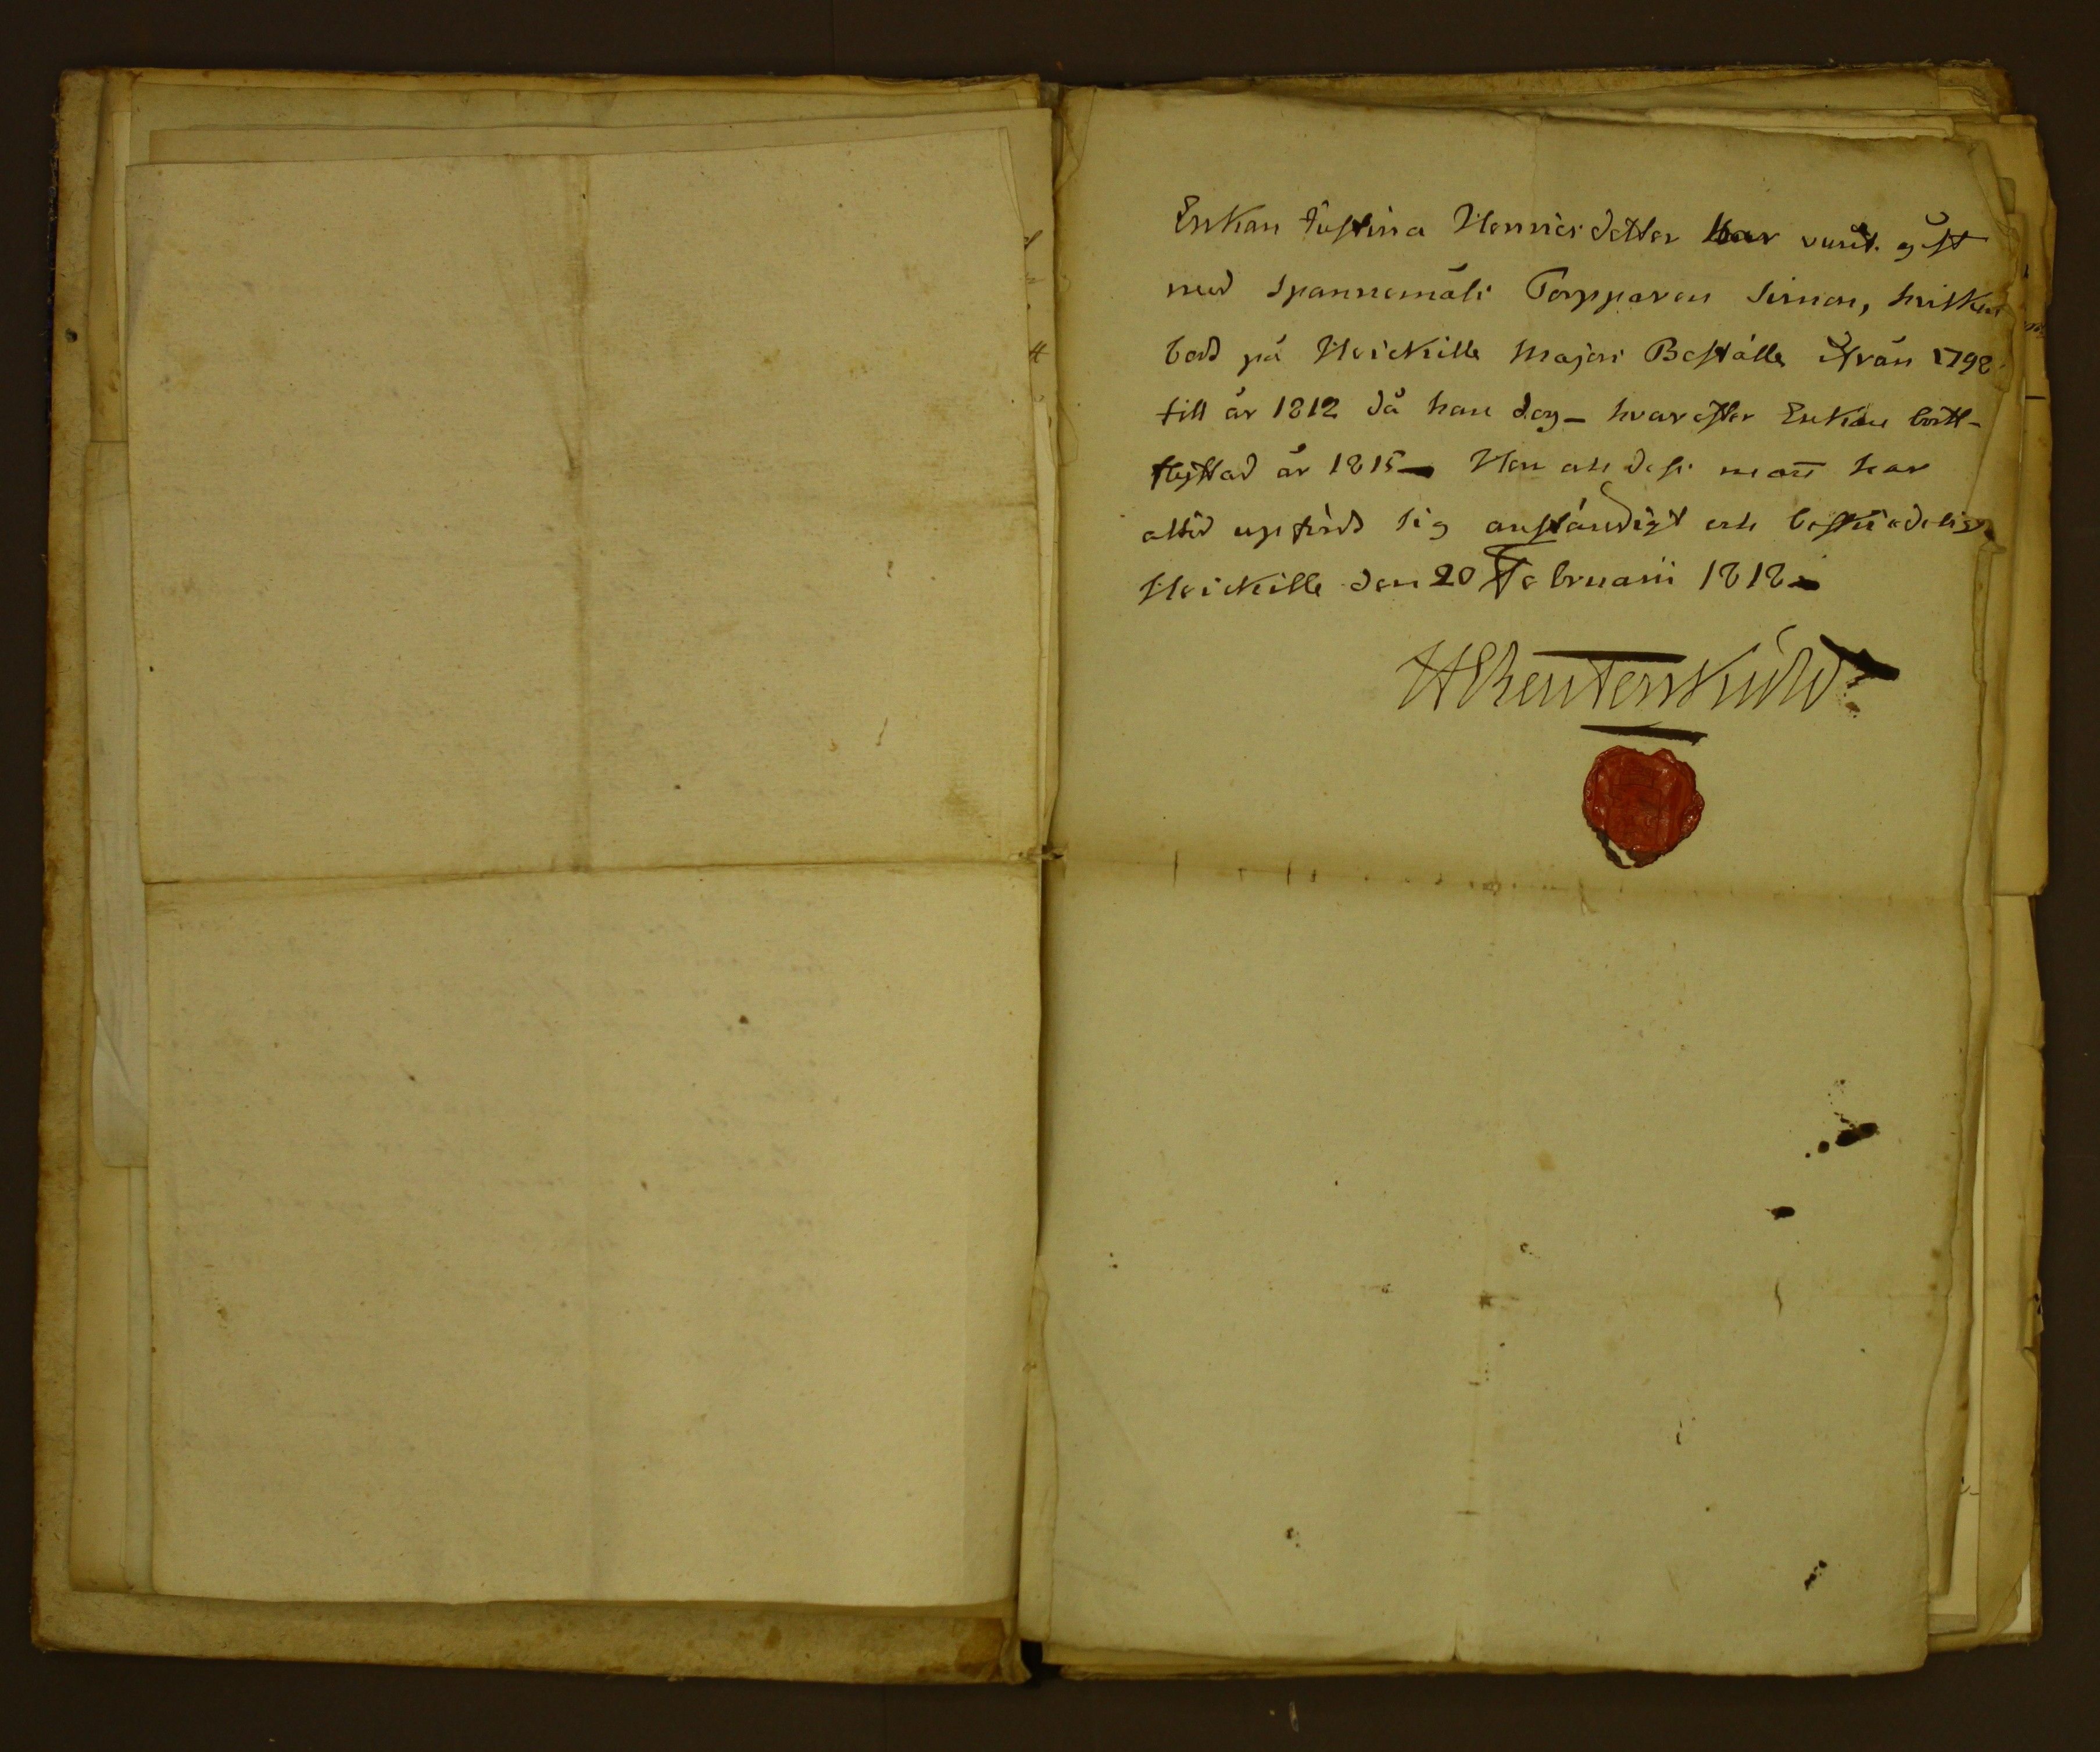 Enkan Justina Henricsdotter har varit gift
med Spannemåls Torpparen Simon, hvilken
bodd på Heickille Majors Boställe ifrån 1798
till år 1812 då han dog – hvarefter Enkan bort-
flyttad år 1815 – Hon och dess man har
altid upfört sig anständigt och beskedeligt
Heickille den 20 Februarii 1818 –
H Reuterskiöld